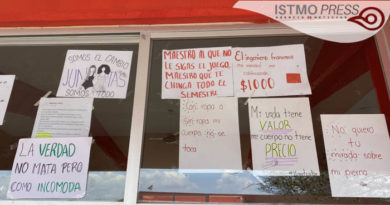 ISTMO PRESS
AGENCIA DE NOTICIAS
SOMOS EL CAMBIO
JUNTAS
SOMOS TODO
MAESTRO AL QUE NO
LE SIGAS EL JUEGO,
MAESTRO QUE TE
CHINGA TODO EL
SEMESTRE
El ingeniero francisco
$1000
Con ropa o
sin ropa mi
cuerpo no se
toca
Mi vida tiene
VALOR
mi cuerpo no tiene
PRECIO
No quiero tu
mirada sobre
mi pierna
LA VERDAD
NO MATA PERO
COMO INCOMODA